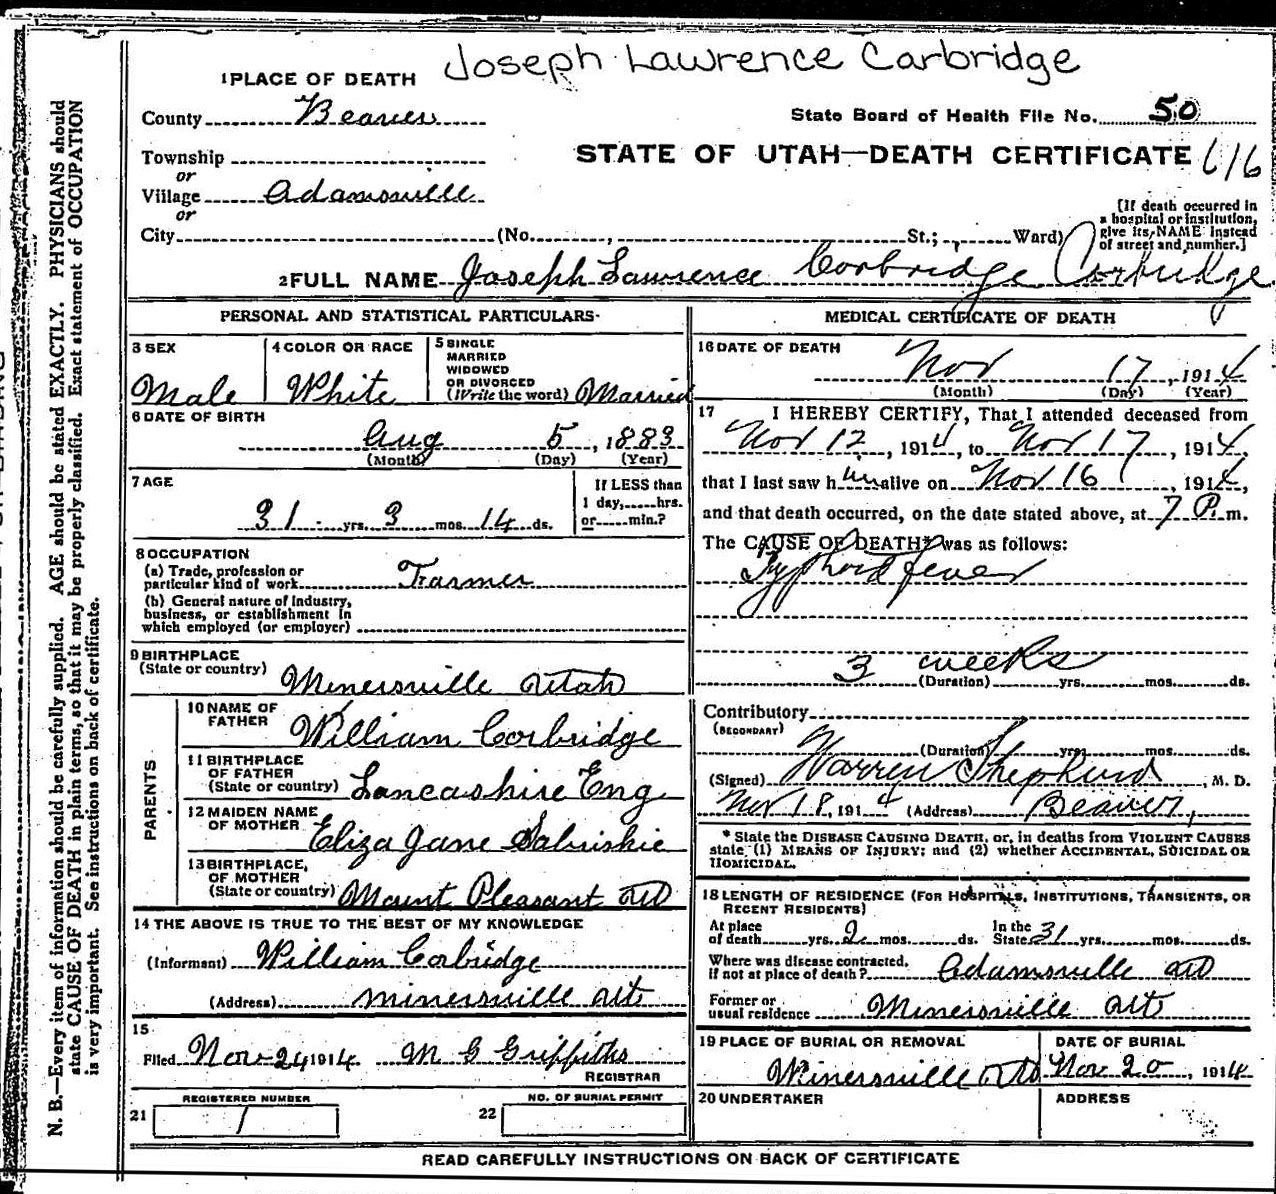 Joseph Lawrence Carbridge
1 PLACE OF DEATH
County Beaver
State Board of Health File No. 50
Township
STATE OF UTAH—DEATH CERTIFICATE 616
or
Village Adamsville
or
City (No. , St.; Ward)
[If death occurred in
a hospital or institution,
give its NAME instead
of street and number.]
2 FULL NAME Joseph Lawrence Corbridge Corbridge
PERSONAL AND STATISTICAL PARTICULARS
3 SEX
Male
4 COLOR OR RACE
White
5 SINGLE
MARRIED
WIDOWED
OR DIVORCED
(Write the word) Married
6 DATE OF BIRTH
Aug 5, 1883
(Month) (Day) (Year)
7 AGE
31 yrs. 3 mos. 14 ds.
If LESS than
1 day, hrs.
or min.?
8 OCCUPATION
(a) Trade, profession or
particular kind of work Farmer
(b) General nature of Industry,
business, or establishment in
which employed (or employer)
9 BIRTHPLACE
(State or country) Minersville Utah
PARENTS
10 NAME OF
FATHER William Corbridge
11 BIRTHPLACE
OF FATHER
(State or country) Lancashire Eng
12 MAIDEN NAME
OF MOTHER Eliza Jane Sabriskie
13 BIRTHPLACE,
OF MOTHER
(State or country) Mount Pleasant Ut
14 THE ABOVE IS TRUE TO THE BEST OF MY KNOWLEDGE
(Informant) William Corbridge
(Address) Minersville Ut
15
Filed Nov 24 1914 M G Griffiths
REGISTRAR
REGISTERED NUMBER
21 1
NO. OF BURIAL PERMIT
22
MEDICAL CERTIFICATE OF DEATH
16 DATE OF DEATH
Nov 17, 1914
(Month) (Day) (Year)
17 I HEREBY CERTIFY, That I attended deceased from
Nov 12, 1914, to Nov 17, 1914,
that I last saw h im alive on Nov 16, 1914,
and that death occurred, on the date stated above, at 7 P. m.
The CAUSE OF DEATH* was as follows:
Typhoid fever
3 weeks
(Duration) yrs. mos. ds.
Contributory
(SECONDARY)
(Duration) yrs. mos. ds.
(Signed) Warren Shepherd, M. D.
Nov 18, 1914 (Address) Beaver,
* State the DISEASE CAUSING DEATH, or, in deaths from VIOLENT CAUSES
state (1) MEANS OF INJURY; and (2) whether ACCIDENTAL, SUICIDAL OR
HOMICIDAL.
18 LENGTH OF RESIDENCE (FOR HOSPITALS, INSTITUTIONS, TRANSIENTS, OR
RECENT RESIDENTS)
At place
of death yrs. 2 mos. ds.
In the
State 31 yrs. mos. ds.
Where was disease contracted,
if not at place of death? Adamsville Ut
Former or
usual residence Minersville Ut
19 PLACE OF BURIAL OR REMOVAL
Minersville Ut
DATE OF BURIAL
Nov 20, 1914
20 UNDERTAKER
ADDRESS
READ CAREFULLY INSTRUCTIONS ON BACK OF CERTIFICATE
N. B.—Every item of information should be carefully supplied. AGE should be stated EXACTLY. PHYSICIANS should
state CAUSE OF DEATH in plain terms, so that it may be properly classified. Exact statement of OCCUPATION
is very important. See instructions on back of certificate.